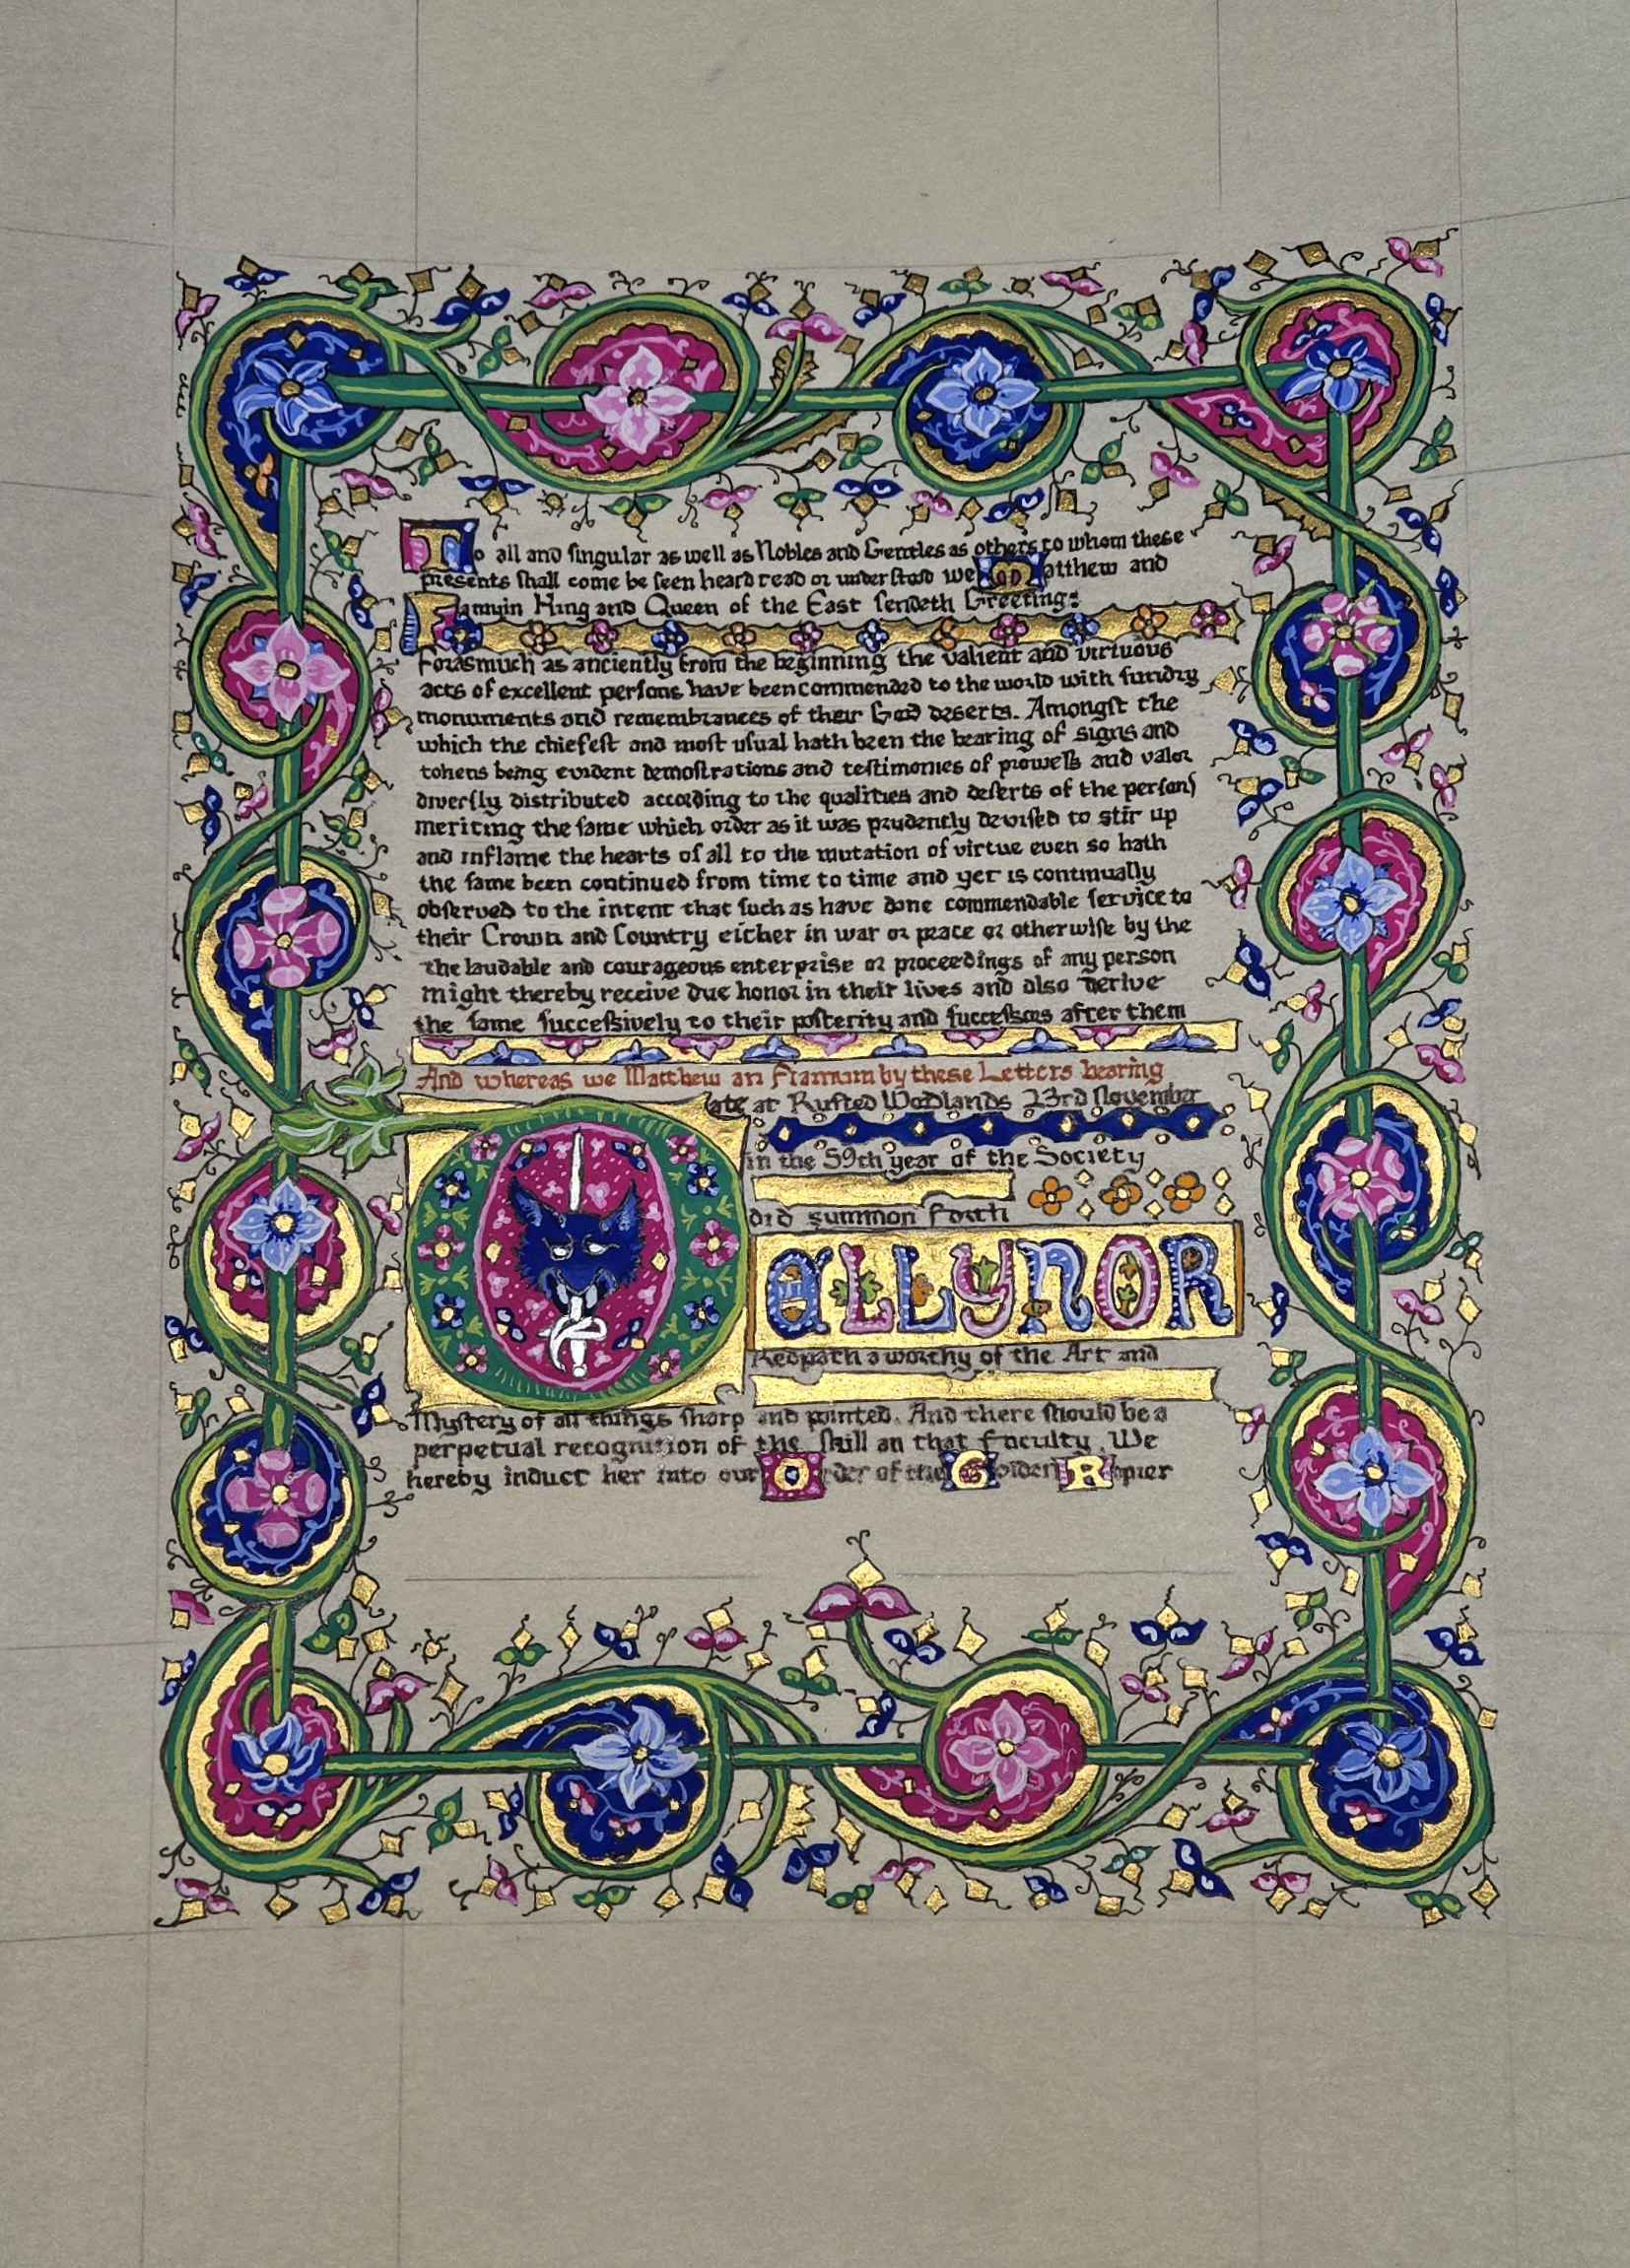 To all and singular as well as Nobles and Gentles as others to whom these
presents shall come be seen heard read or understood we Matthew and
Fannyin King and Queen of the East sendeth Greeting:
Forasmuch as anciently from the beginning the valient and virtuous
acts of excellent persons have been commended to the world with sundry
monuments and remembrances of their Good deserts. Amongst the
which the chiefest and most usual hath been the bearing of signs and
tokens being evident demostrations and testimonies of prowess and valor
diversly distributed according to the qualities and deserts of the persons
meriting the same which order as it was prudently devised to stir up
and inflame the hearts of all to the mutation of virtue even so hath
the same been continued from time to time and yet is continually
observed to the intent that such as have done commendable service to
their Crown and Country either in war or peace or otherwise by the
the laudable and courageous enterprise or proceedings of any person
might thereby receive due honor in their lives and also derive
the same successively to their posterity and successors after them
And whereas we Matthew an by these Letters bearing
Date at Rusted Woodlands 23rd November
in the 59th year of the Society
did summon forth
aLLYNOR
Redpath a worthy of the Art and
Mystery of all things sharp and pointed. And there should be a
perpetual recognition of the skill an that faculty. We
hereby induct her into our Order of the Golden Rapier